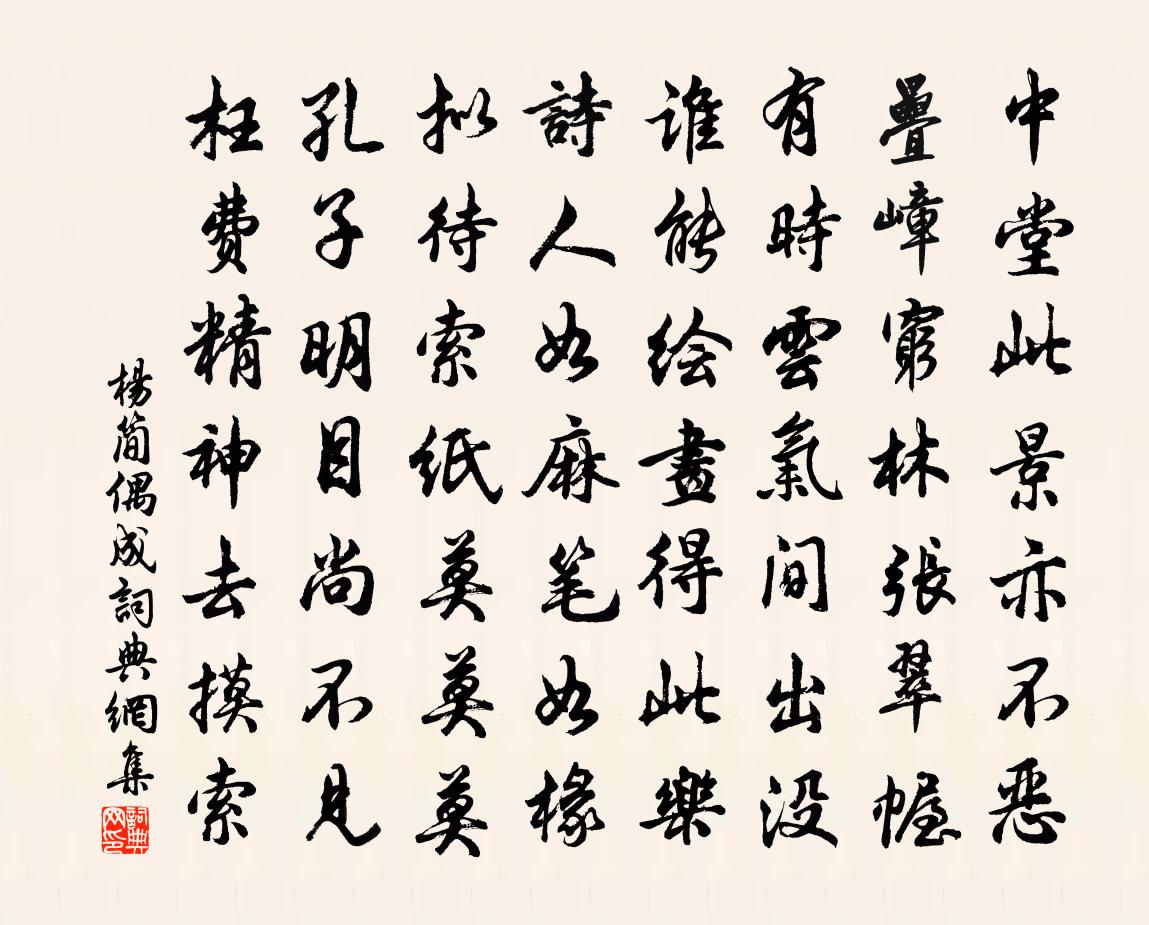 中堂此景亦不恶
疊嶂窮林張翠幄
有時雲氣间出没
谁能绘畫得此樂
詩人如麻笔如椽
拟待索纸莫莫莫
孔子明目尚不見
枉費精神去摸索
楊简偶成詞典網集
詞典